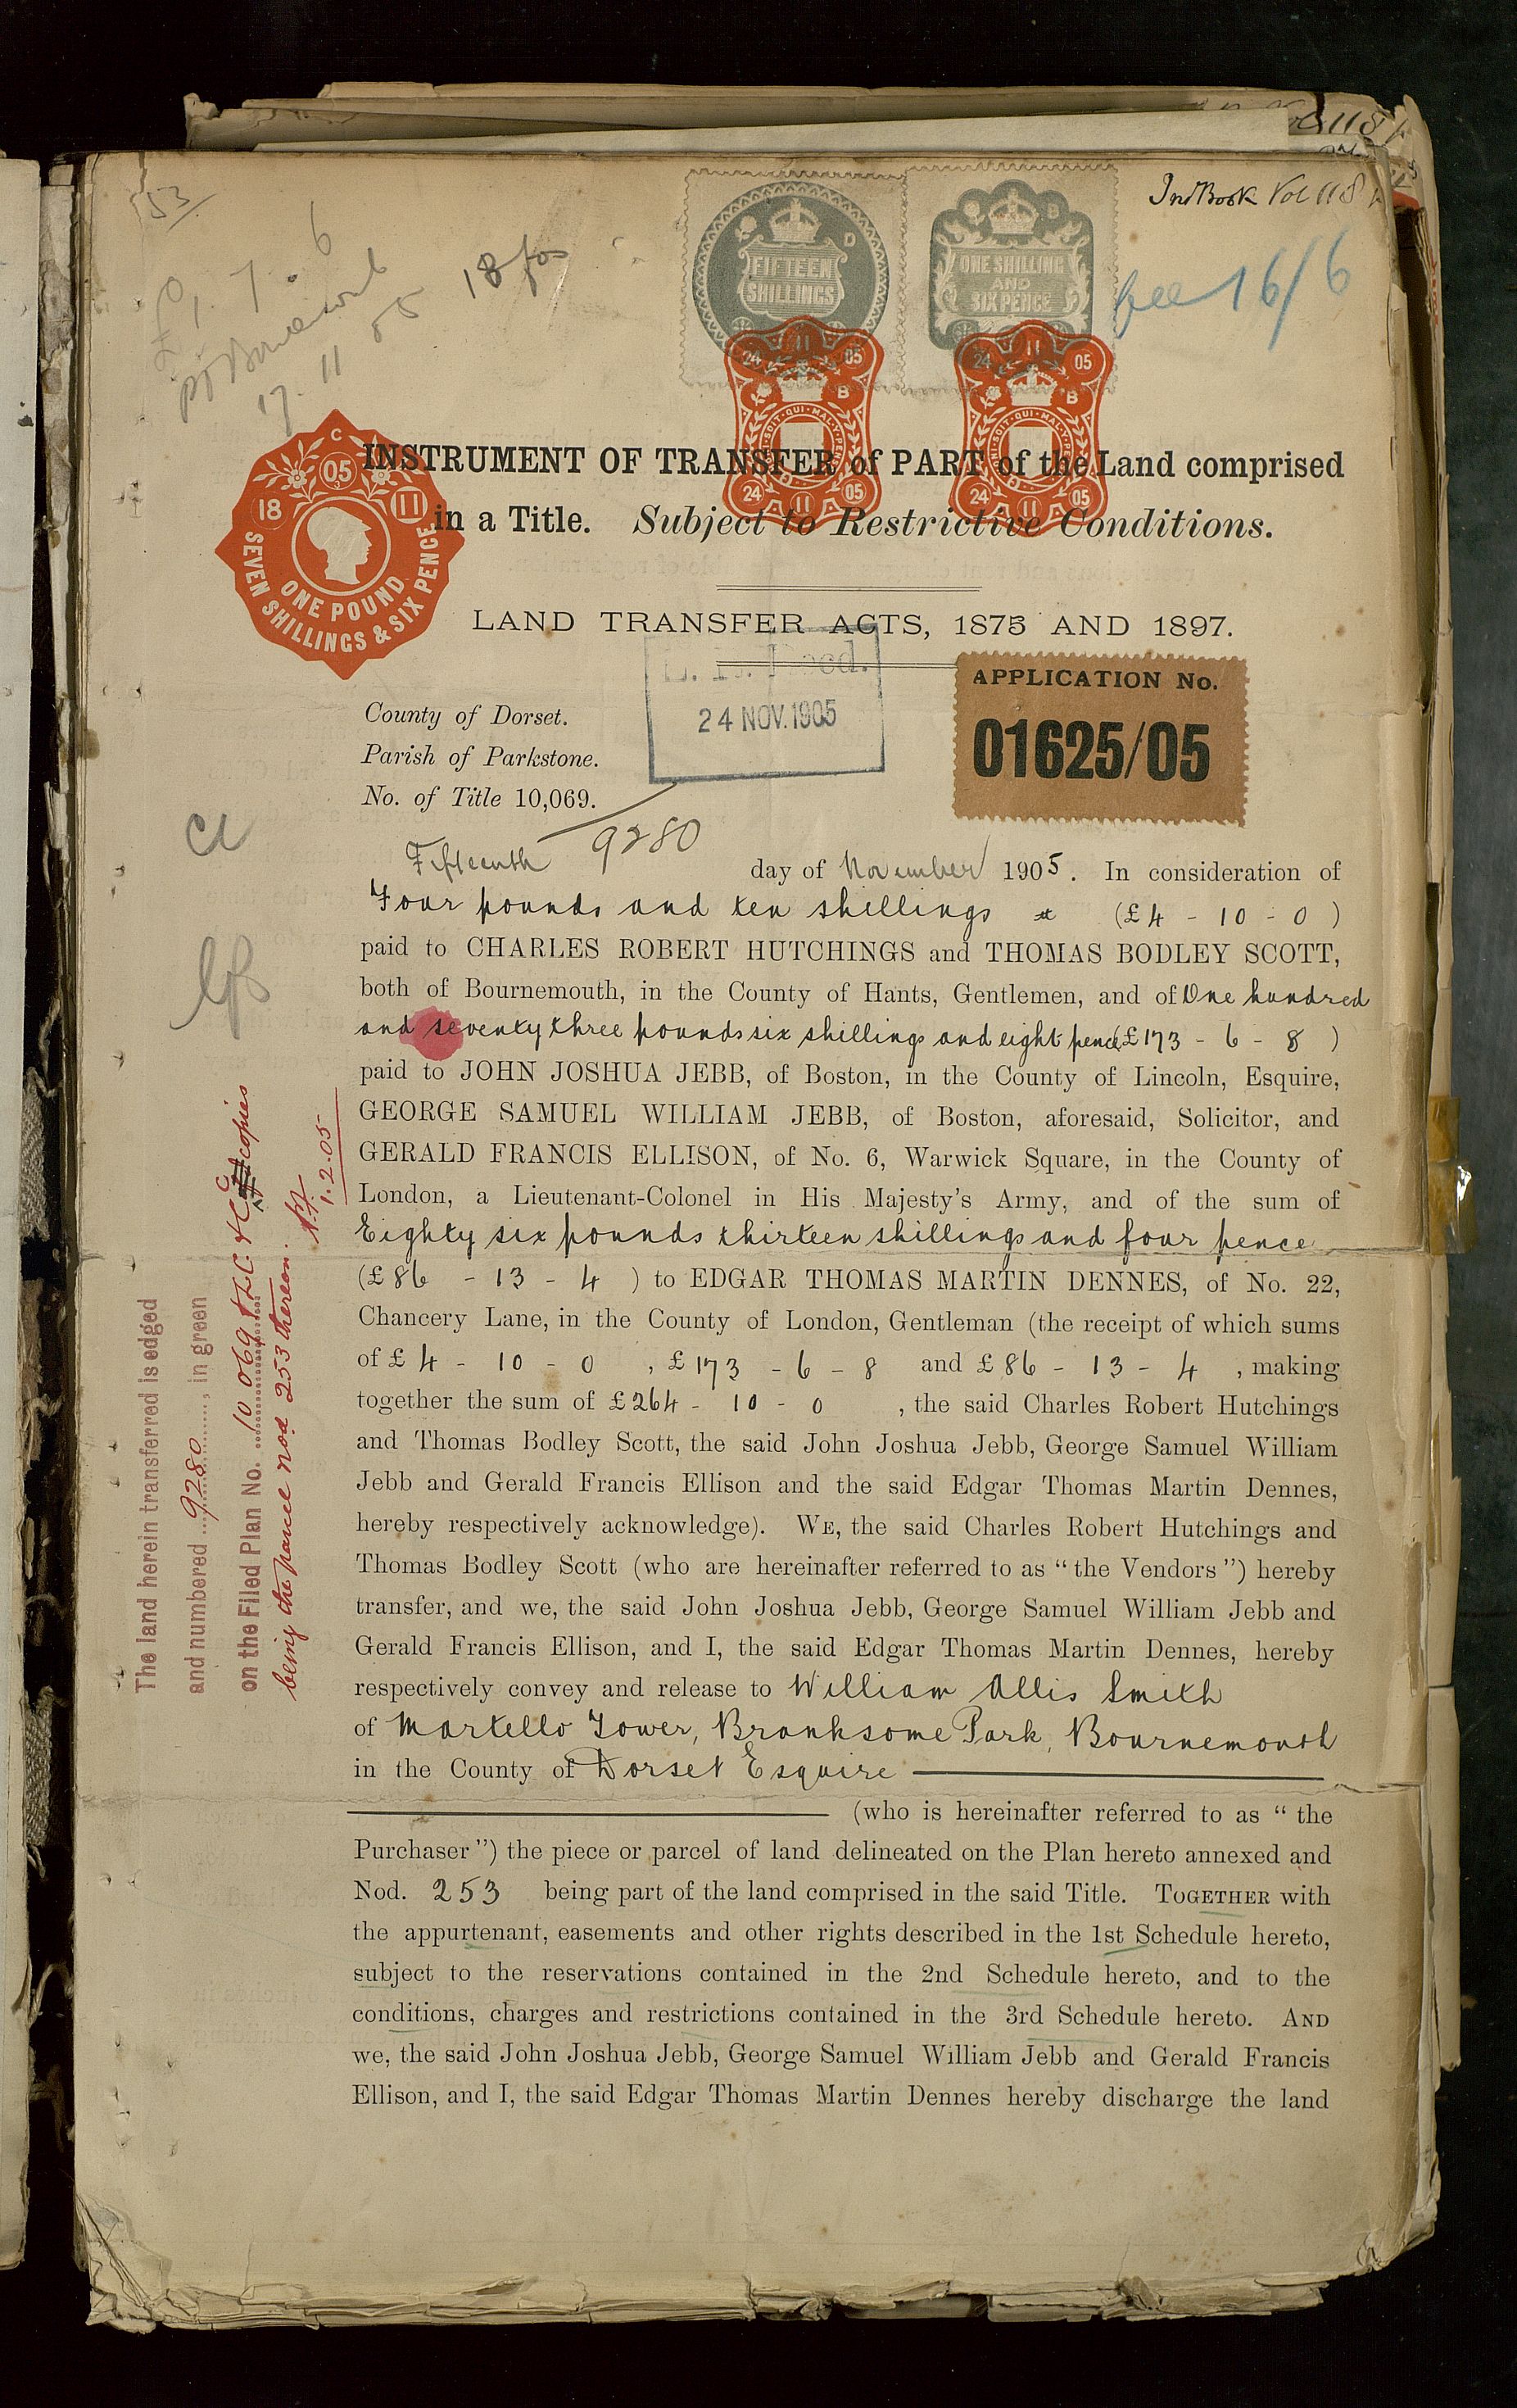 Ind Book Vol 118
53
£1. 7. 6
17. 11 05
18 fos
FIFTEEN
SHILLINGS
D
ONE SHILLING
AND
SIX PENCE
D
fee 16/6
24 11 05
B
24 11 05
24 11 05
B
24 11 05
C
18 05 11
ONE POUND
SEVEN SHILLINGS & SIX PENCE
INSTRUMENT OF TRANSFER of PART of the Land comprised
in a Title. Subject to Restrictive Conditions.
LAND TRANSFER ACTS, 1875 AND 1897.
24 NOV. 1905
APPLICATION No.
01625/05
County of Dorset.
Parish of Parkstone.
No. of Title 10,069.
9280
Fifteenth day of November 1905. In consideration of
Four pounds and ten shillings (£4 - 10 - 0)
paid to CHARLES ROBERT HUTCHINGS and THOMAS BODLEY SCOTT,
both of Bournemouth, in the County of Hants, Gentlemen, and of One hundred
and seventy three pounds six shillings and eight pence (£173 - 6 - 8)
paid to JOHN JOSHUA JEBB, of Boston, in the County of Lincoln, Esquire,
GEORGE SAMUEL WILLIAM JEBB, of Boston, aforesaid, Solicitor, and
GERALD FRANCIS ELLISON, of No. 6, Warwick Square, in the County of
London, a Lieutenant-Colonel in His Majesty's Army, and of the sum of
Eighty six pounds thirteen shillings and four pence
(£86 - 13 - 4) to EDGAR THOMAS MARTIN DENNES, of No. 22,
Chancery Lane, in the County of London, Gentleman (the receipt of which sums
of £4 - 10 - 0, £173 - 6 - 8 and £86 - 13 - 4, making
together the sum of £264 - 10 - 0, the said Charles Robert Hutchings
and Thomas Bodley Scott, the said John Joshua Jebb, George Samuel William
Jebb and Gerald Francis Ellison and the said Edgar Thomas Martin Dennes,
hereby respectively acknowledge). WE, the said Charles Robert Hutchings and
Thomas Bodley Scott (who are hereinafter referred to as "the Vendors") hereby
transfer, and we, the said John Joshua Jebb, George Samuel William Jebb and
Gerald Francis Ellison, and I, the said Edgar Thomas Martin Dennes, hereby
respectively convey and release to William Allis Smith
of Martello Tower, Branksome Park, Bournemouth
in the County of Dorset Esquire
(who is hereinafter referred to as "the
Purchaser") the piece or parcel of land delineated on the Plan hereto annexed and
Nod. 253 being part of the land comprised in the said Title. TOGETHER with
the appurtenant, easements and other rights described in the 1st Schedule hereto,
subject to the reservations contained in the 2nd Schedule hereto, and to the
conditions, charges and restrictions contained in the 3rd Schedule hereto. AND
we, the said John Joshua Jebb, George Samuel William Jebb and Gerald Francis
Ellison, and I, the said Edgar Thomas Martin Dennes hereby discharge the land
The land herein transferred is edged
and numbered 9280, in green
on the Filed Plan No. 10 069 copies
being the parcel nod 253 thereon.
1.2.05